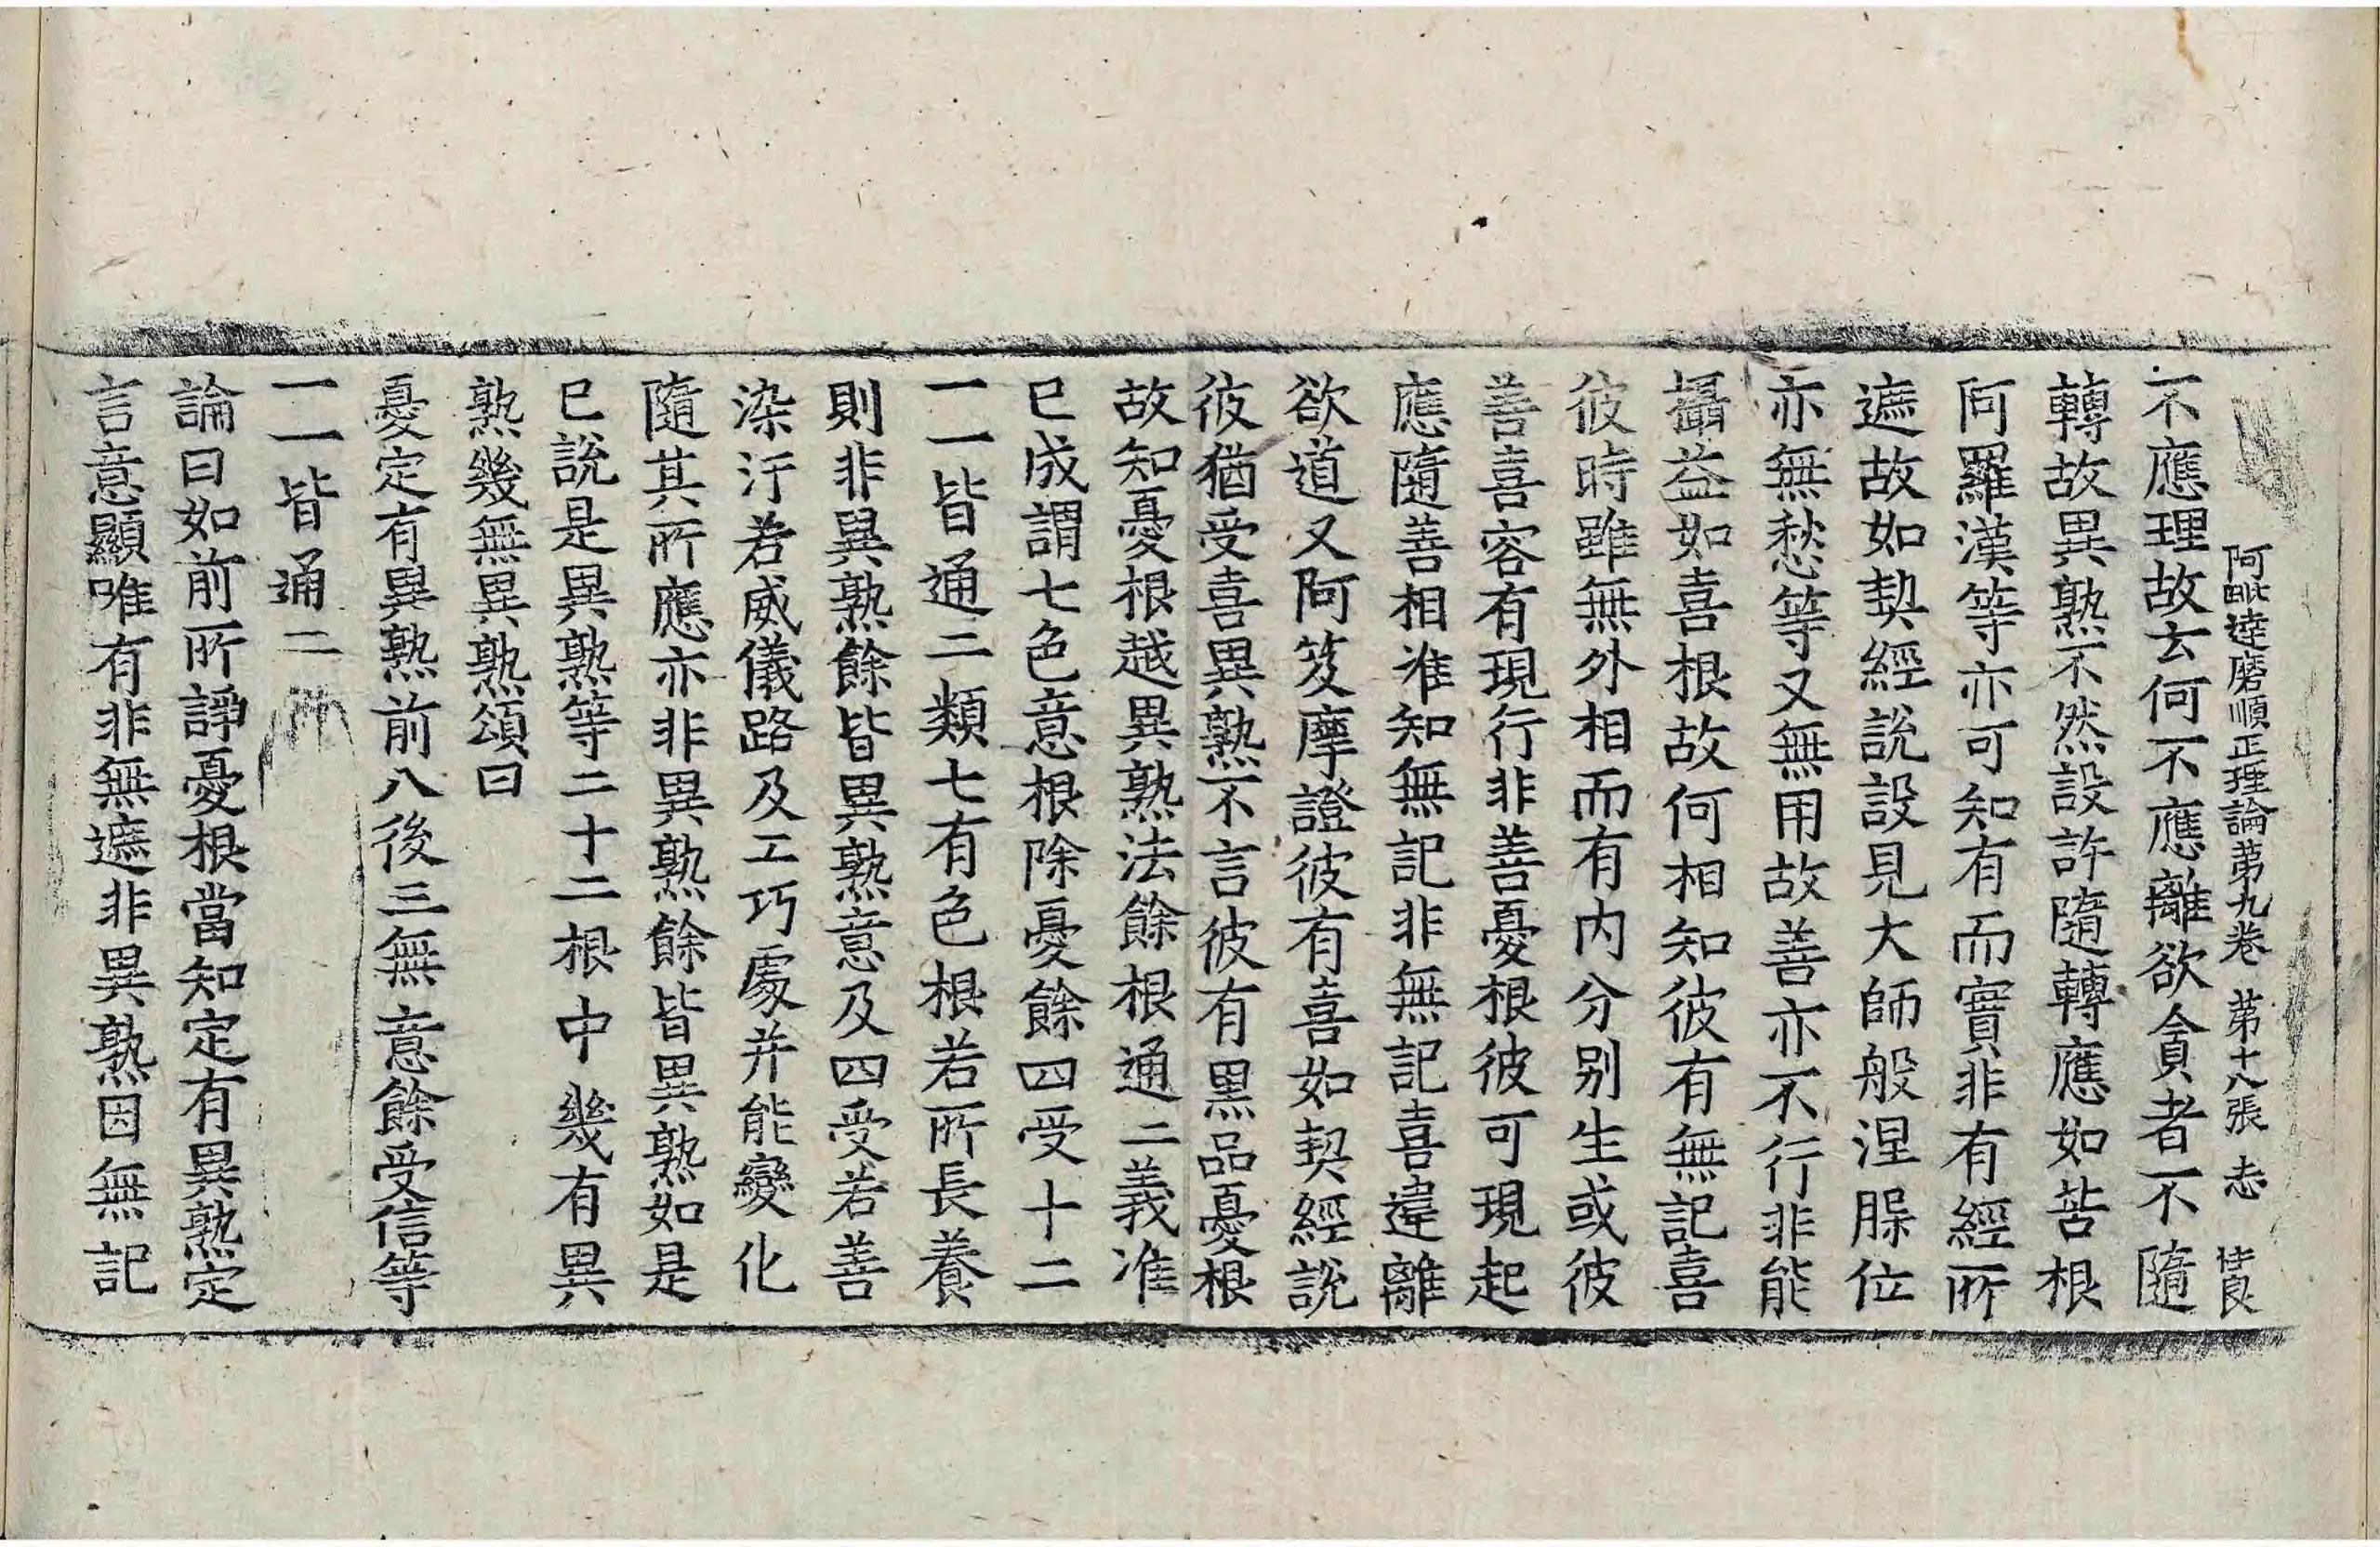 阿毗達磨順正理論第九卷 第十八張 志
不應理故去何不應離欲貪者不隨
轉故異熟不然設許隨轉應如苦根
阿羅漢等亦可知有而實非有經所
遮故如契經說設見大師般涅槃位
亦無愁等又無用故善亦不行非能
攝益如喜根故何相知彼有無記喜
彼時雖無外相而有内分别生或彼
善喜容有現行非善憂根彼可現起
應隨善相准知無記非無記喜違離
欲道又阿笈摩證彼有喜如契經說
彼猶受喜異熟不言彼有黑品憂根
故知憂根越異熟法餘根通二義准
已成謂七色意根除憂餘四受十二
一一皆通二類七有色根若所長養
則非異熟餘皆異熟意及四受若善
染汙若威儀路及工巧處并能變化
隨其所應亦非異熟餘皆異熟如是
已說是異熟等二十二根中幾有異
熟幾無異熟頌曰
憂定有異熟前八後三無意餘受信等
一一皆通二
論曰如前所諍憂根當知定有異熟定
言意顯唯有非無遮非異熟因無記